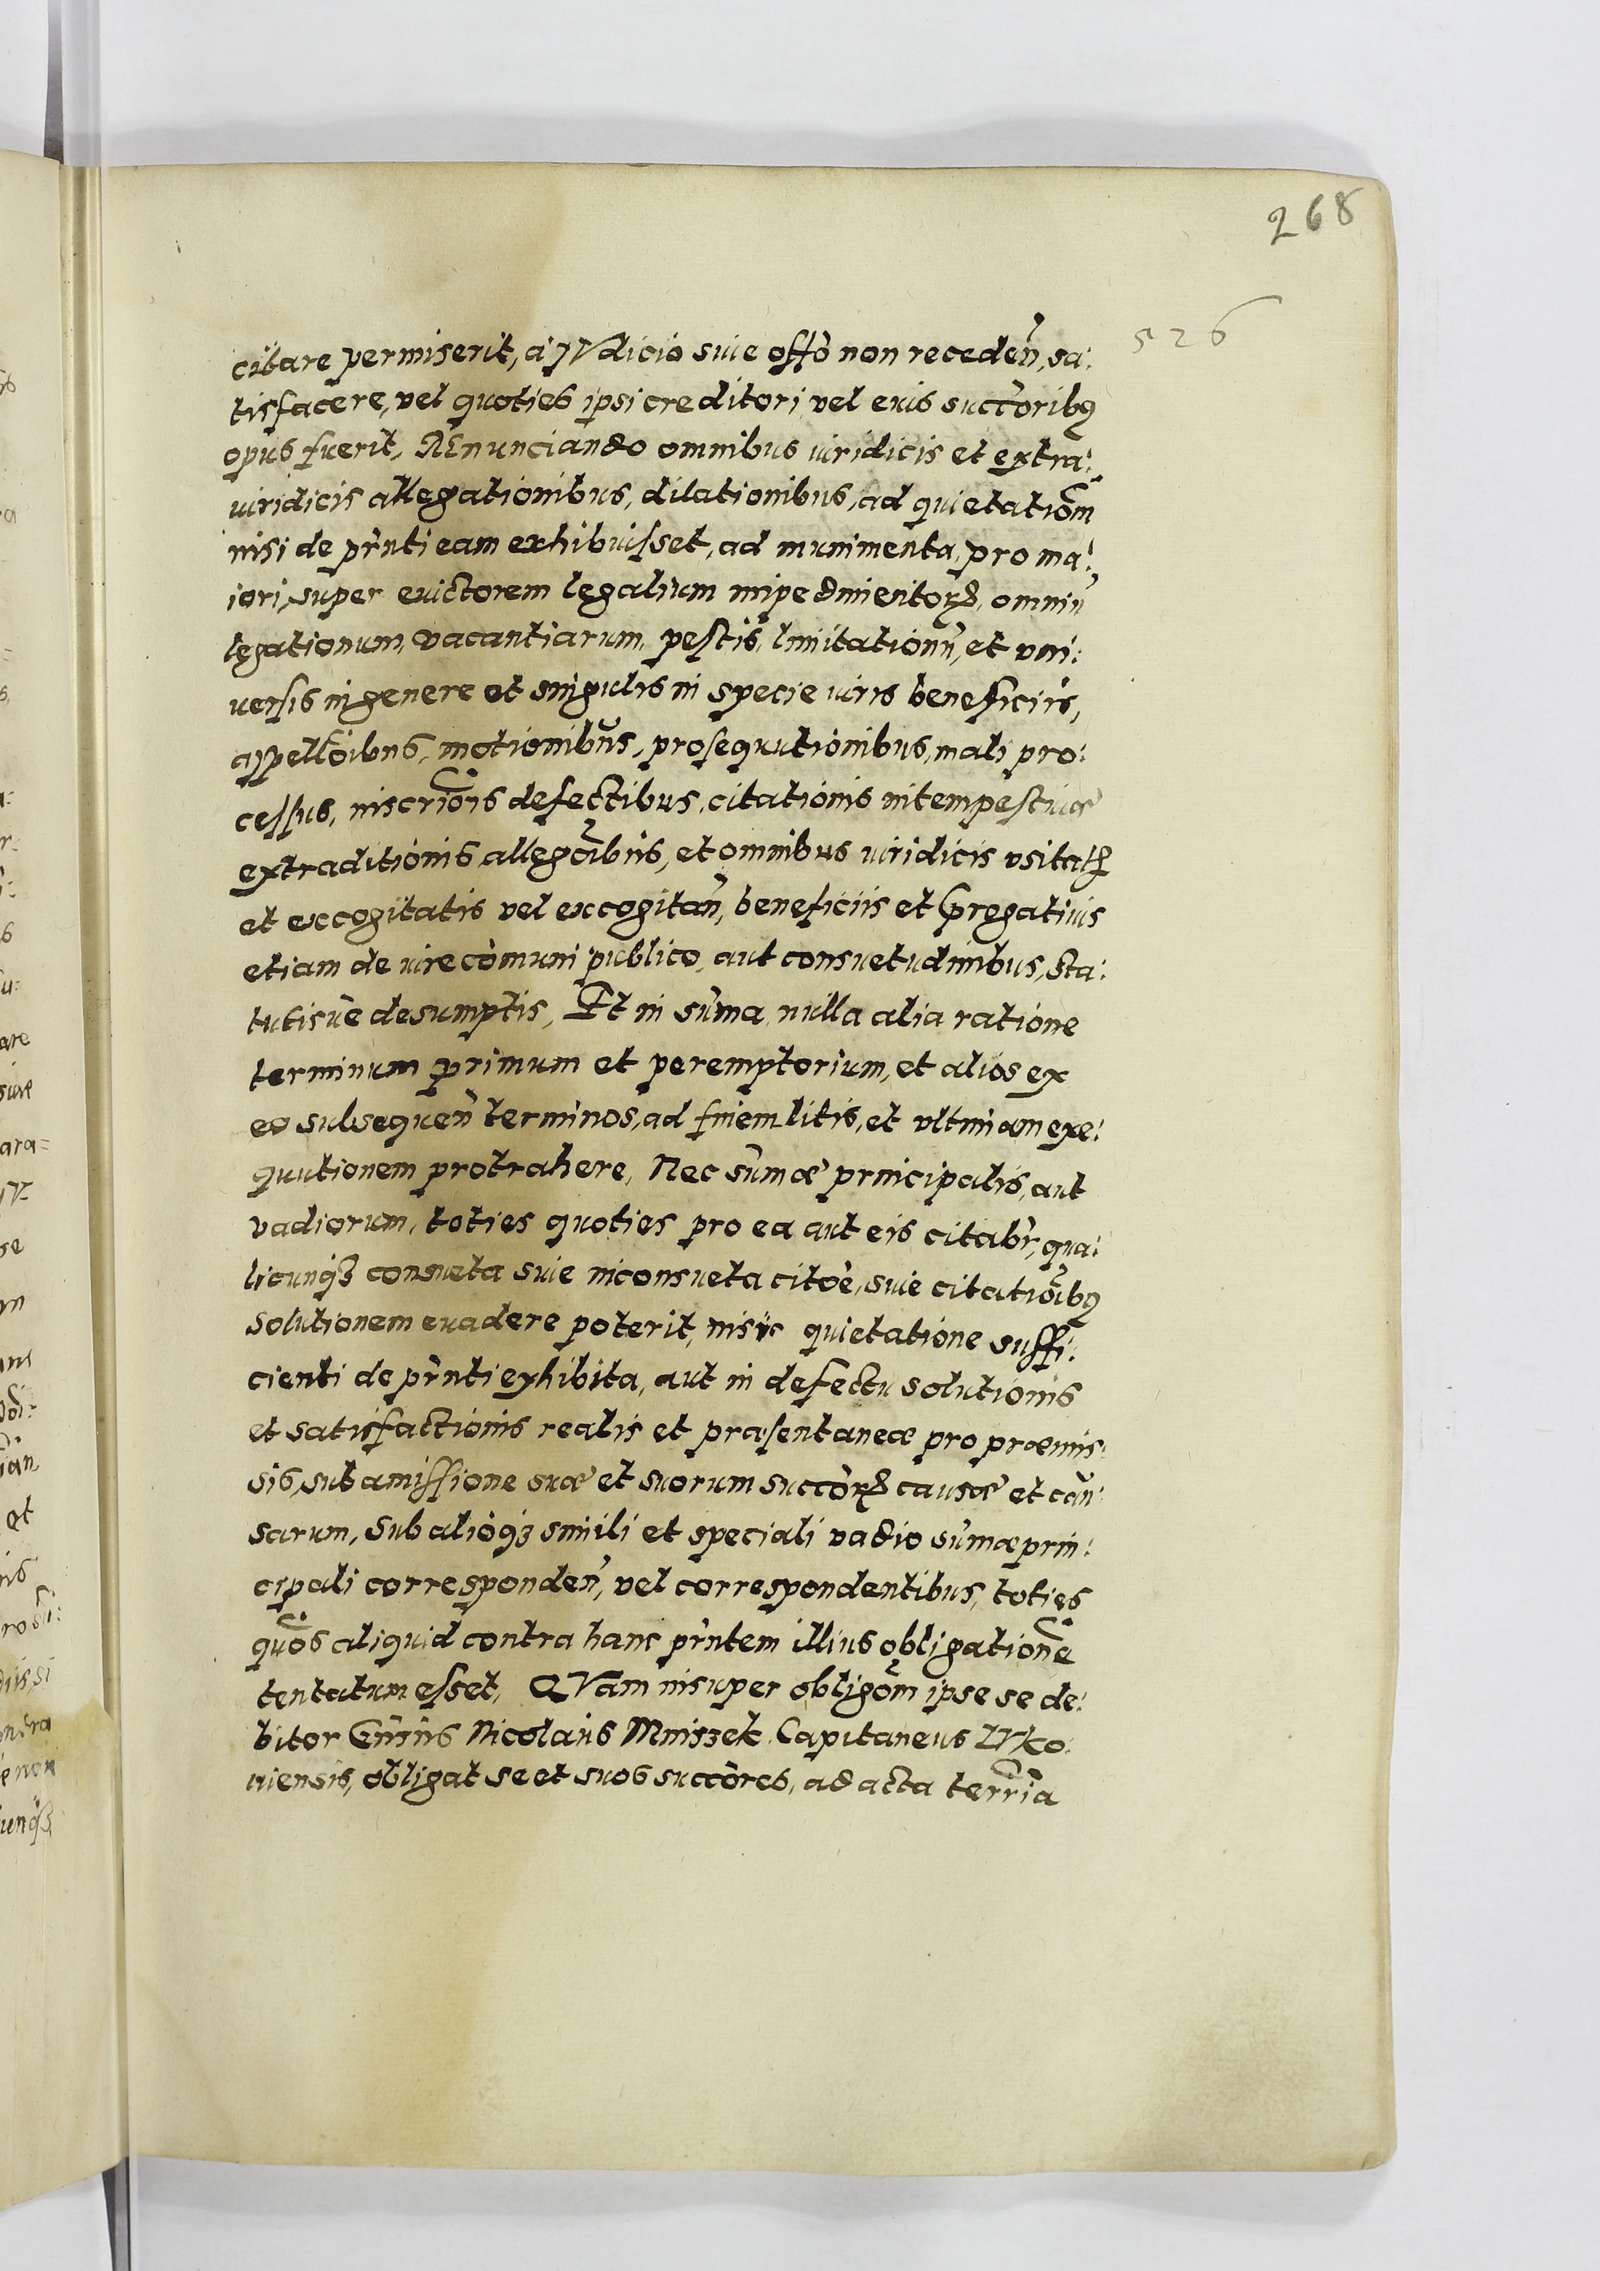 268
526
citare permiserit, à IVdicio siue offò non recedeñ, sa:
tisfacere, vel quoties ipsi creditori vel eius succòribq
opus fuerit, REnunciando omnibus iuridicis et extra:
iuridicis allegationibus, dilationibus, ad quietatiom̃
nisi de pr̀nti eam exhibuisset, ad munimenta, pro ma:
iori, super euictorem legalium impedimentorꝝ, omniũ
legationum, vacantiarum, pestis, limitationũ, et vni:
uersis in genere et singulis in specie iuris beneficiis,
appelltoibus, motionibus, prosequutionibus, mali pro:
cessus, inscrionis defectibus, citationis intempestiuæ
extraditionis allegoibus, et omnibus iuridicis vsitatꝭ
et excogitatis vel excogitañ, beneficiis et ꝓrogatiuis
etiam de iure còmuni publico, aut consuetudinibus, sta:
tutisue desumptis, Et in sùma nulla alia ratione
terminum primum et peremptorium, et alios ex
eo subsequeñ terminos, ad finem litis, et vltimam exe:
quutionem protrahere, Nec sùmæ principalis, aut
vadiorum, toties quoties pro ea aut eis citabr̀, qua:
licunqꝫ consueta siue inconsueta citòe, siue citatioibq
solutionem euadere poterit, nisi quietatione suffi:
cienti de pr̀nti exhibita, aut in defectu solutionis
et satisfactionis realis et præsentaneæ pro præmis:
sis, sub amissione suæ et suorum succòrꝝ causæ et cau:
sarum, Sub alioqꝫ simili et speciali vadio sùmæ prin:
cipali correspondeñ, vel correspondentibus, toties
quos aliquid contra hanc pr̀ntem illius obligatione
tentatum esset, QVam insuper obligom̃ ipse se de:
bitor Gnsus Nicolaus Mniszek Capitaneus LVko:
uiensis, obligat se et suos succòres, ad acta terria